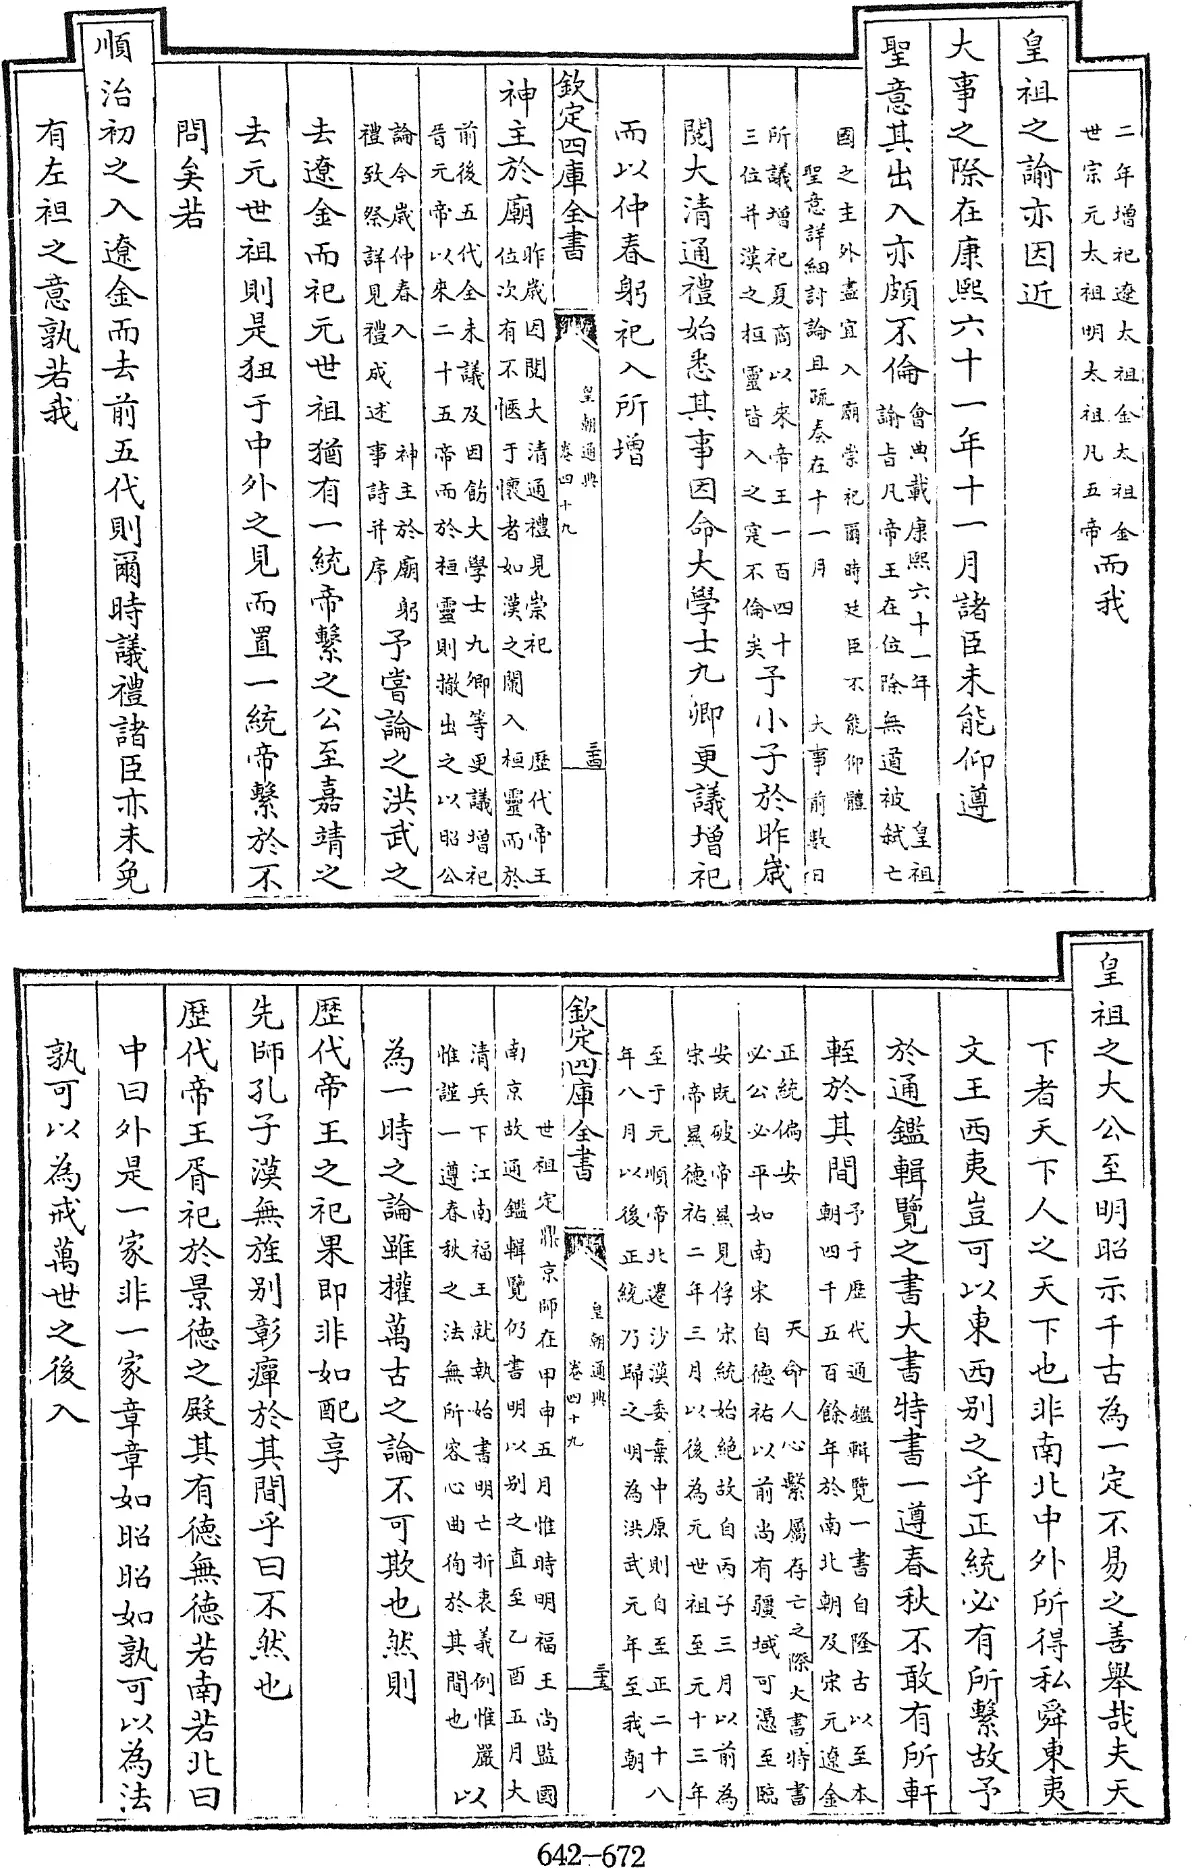 二年增祀遼太祖金太祖金
世宗元太祖明太祖凡五帝
而我
皇祖之諭亦因近
大事之際在康熙六十一年十一月諸臣未能仰遵
聖意其出入亦頗不倫
會典載康熙六十一年 皇祖
諭旨凡帝王在位除無道被弑亡
國之主外盡宜入廟崇祀爾時廷臣不能仰體
聖意詳細討論且疏奏在十一月 大事前數日
所議增祀夏商以來帝王一百四十
三位并漢之桓靈皆入之寔不倫矣
予小子於昨歲
閱大清通禮始悉其事因命大學士九卿更議增祀
而以仲春躬祀入所增
欽定四庫全書
皇朝通典
卷四十九
三四
神主於廟
昨歲因閱大清通禮見崇祀 歷代帝王
位次有不愜于懷者如漢之闌入桓靈而於
前後五代全未議及因飭大學士九卿等更議增祀
晉元帝以來二十五帝而於桓靈則撤出之以昭公
論今歲仲春入 神主於廟躬
禮致祭詳見禮成述事詩并序
予嘗論之洪武之
去遼金而祀元世祖猶有一統帝繫之公至嘉靖之
去元世祖則是狃于中外之見而置一統帝繫於不
問矣若
順治初之入遼金而去前五代則爾時議禮諸臣亦未免
有左袒之意孰若我
皇祖之大公至明昭示千古為一定不易之善舉哉夫天
下者天下人之天下也非南北中外所得私舜東夷
文王西夷豈可以東西別之乎正統必有所繫故予
於通鑑輯覽之書大書特書一遵春秋不敢有所軒
輊於其間
予于歷代通鑑輯覽一書自隆古以至本
朝四千五百餘年於南北朝及宋元遼金
正統偏安 天命人心繫屬存亡之際大書特書
必公必平如南宋自德祐以前尚有疆域可憑至臨
安既破帝㬎見俘宋統始絕故自丙子三月以前為
宋帝㬎德祐二年三月以後為元世祖至元十三年
至于元順帝北遷沙漠委棄中原則自至正二十八
年八月以後正統乃歸之明為洪武元年至我朝
欽定四庫全書
皇朝通典
卷四十九
三五
世祖定鼎京師在甲申五月惟時明福王尚監國
南京故通鑑輯覽仍書明以別之直至乙酉五月大
清兵下江南福王就執始書明亡折衷義例惟嚴
惟謹一遵春秋之法無所容心曲徇於其間也
以
為一時之論雖權萬古之論不可欺也然則
歷代帝王之祀果即非如配享
先師孔子漠無旌別彰癉於其間乎曰不然也
歷代帝王胥祀於景德之殿其有德無德若南若北曰
中曰外是一家非一家章章如昭昭如孰可以為法
孰可以為戒萬世之後入
642-672